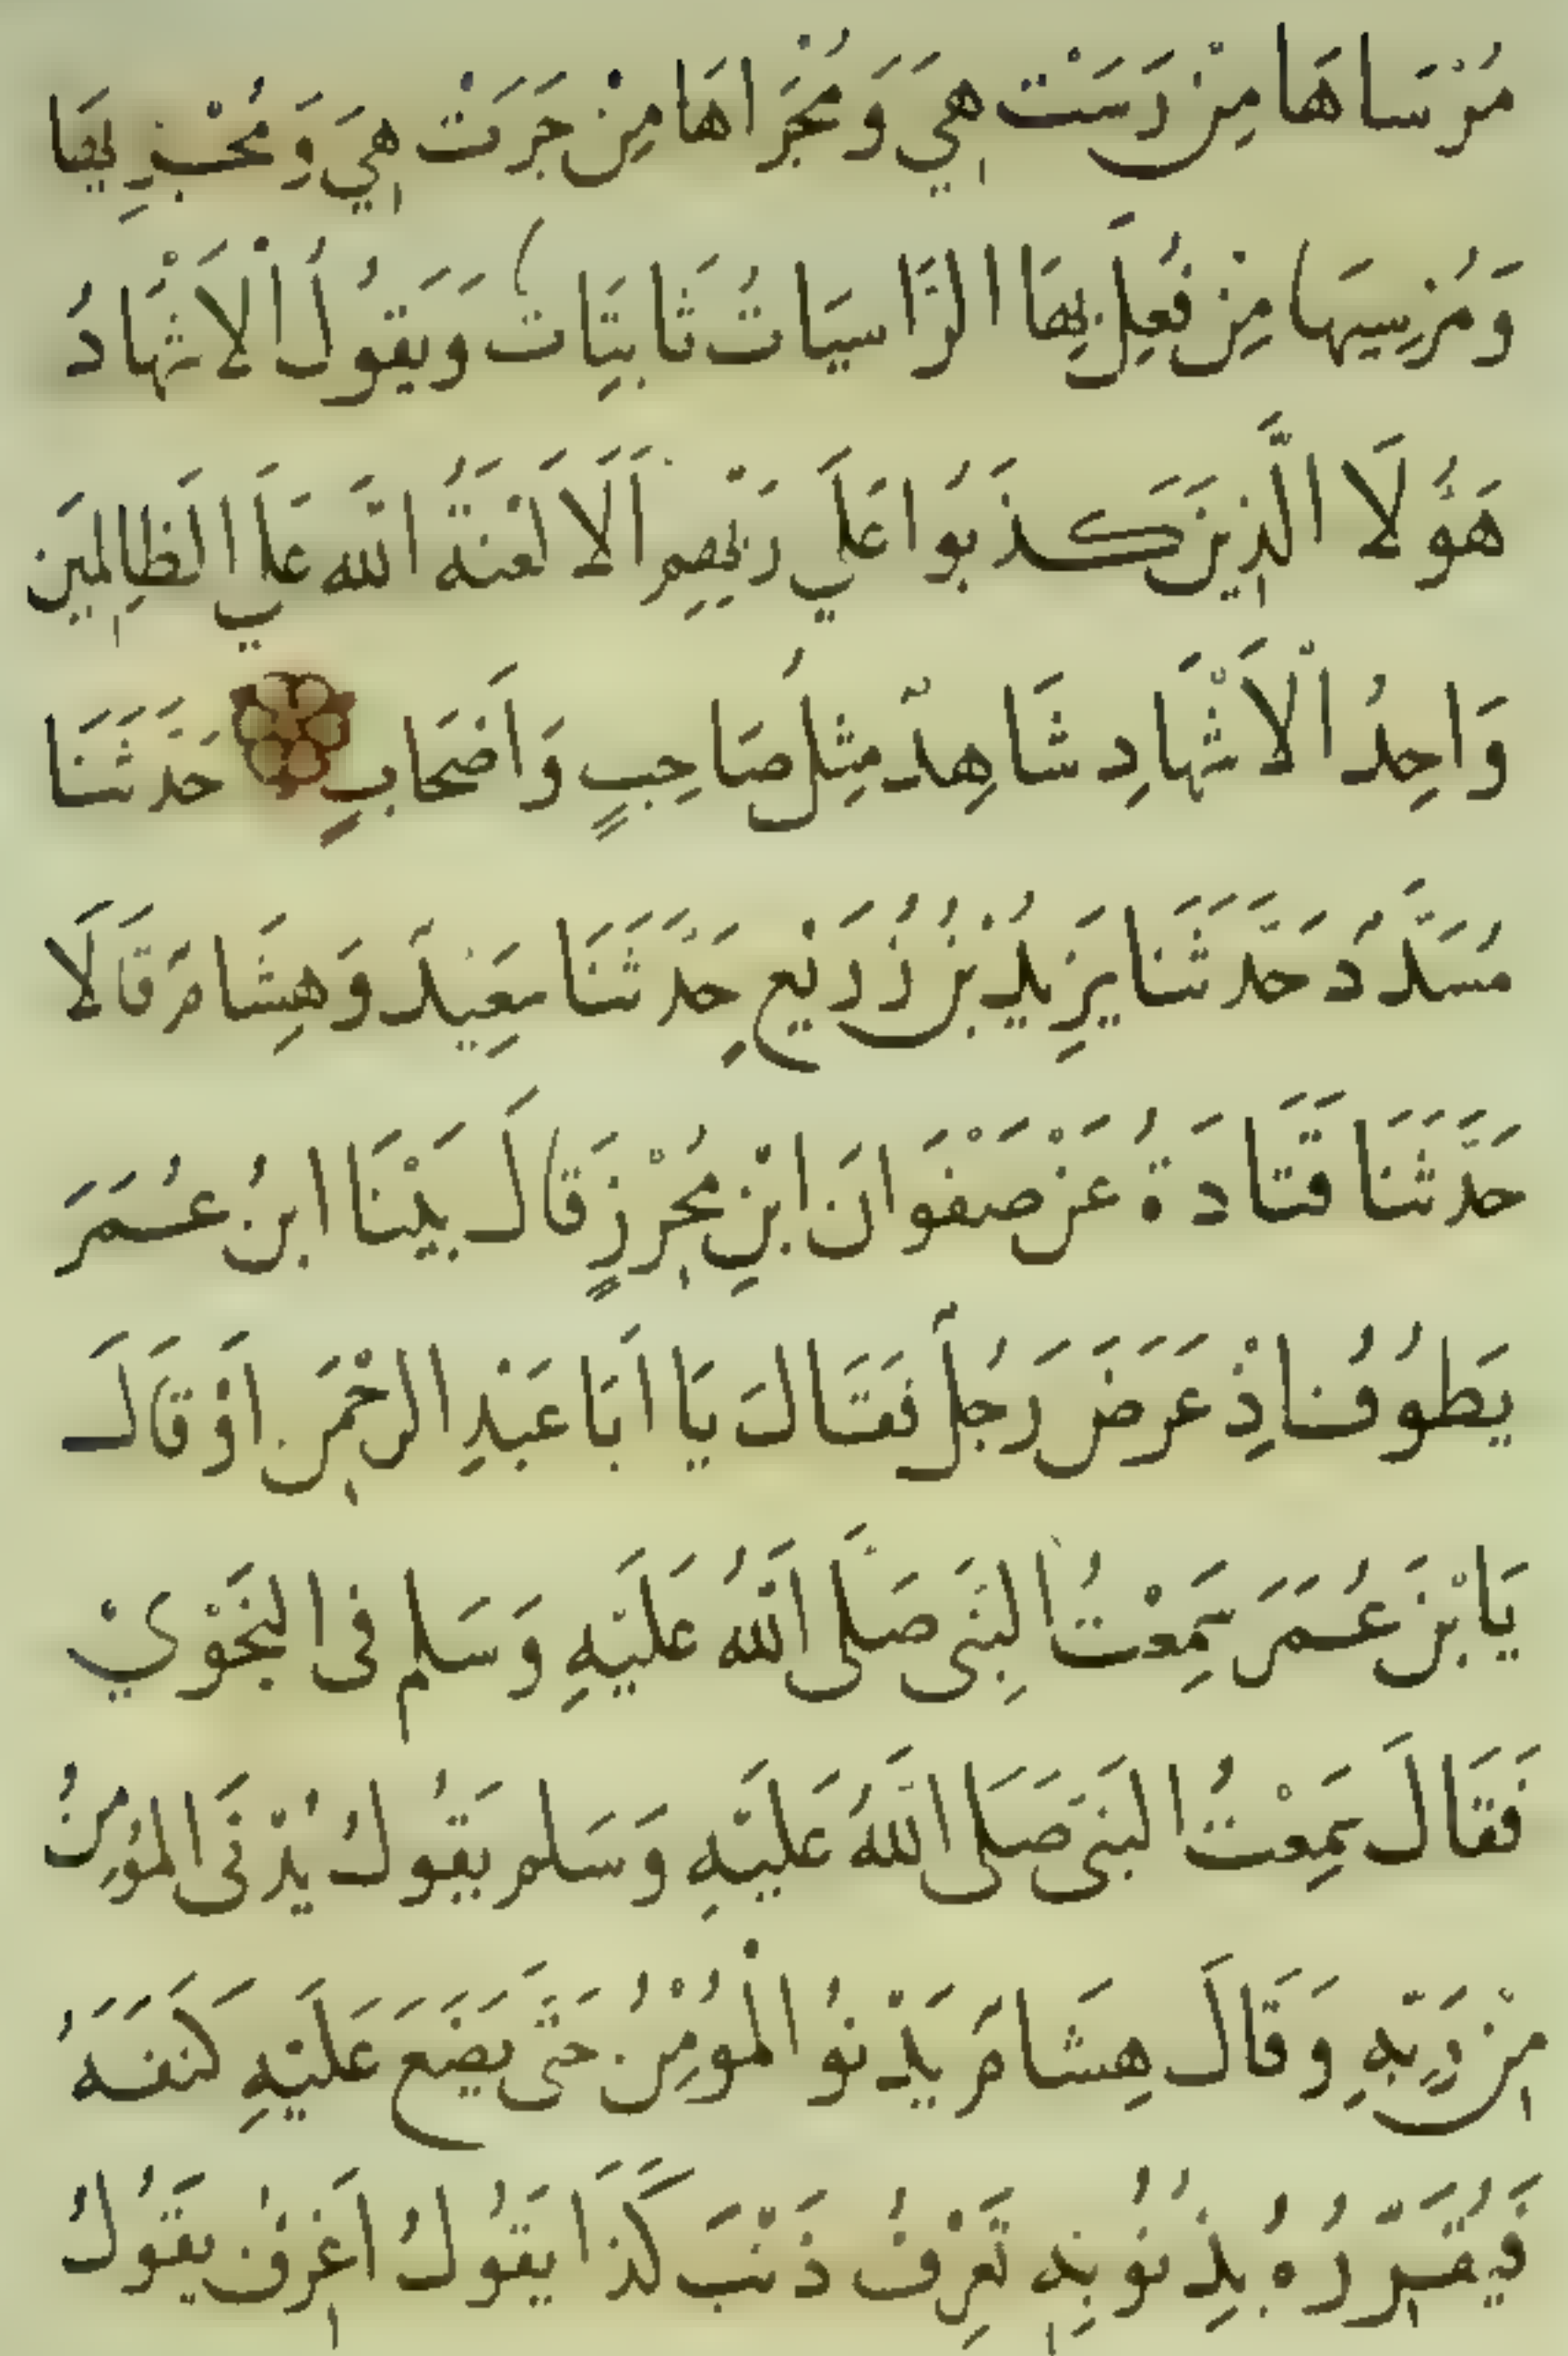 مَرْسَاهَا مِنْ رَسَتْ هِيَ وَمَجْرَاهَا مِنْ جَرَتْ هِيَ وَمُجْرِيهَا
وَمُرْسِيهَا مِنْ فُعِلَ بِهَا الرَّاسِيَاتُ ثَابِتَات وَيَقُولُ الْاَشْهَادُ
هَؤُلَا الَّذِينَ كَذَبُوا عَلَي رَبِّهِم اَلَا لَعْنَةُ اللَّه عَلَي الظَالِمِينَ
وَاحِدُ الْاَشْهَادِ شَاهِدٌ مِثِلُ صَاحِبٍ وَاَصْحَابٍ حَدَّثَنَا
مُسَدَّدٌ حَدَّثَنَا يَزِيدُ بْنُ زُرَيْع حَدَّثَنَا سَعِيْدٌ وَهِشَامٌ قَالَا
حَدَّثَنَا قَتَادَةُ عَنْ صَفْوَانَ ابْنِ مُحْرِزٍ قَالَ بَيْنَا ابنُ عُمَرَ
يَطُوفُ اِذْ عَرَضَ رَجُلٌ فَقَالَ يَا اَبَا عَبْدِ الرحْمِن اَوْ قَالَ
يَا بْنَ عُمَرَ سَمِعْتُ النَبِى صَلَّى اللَّهُ عَلَيْهِ وَسَلم فى النَجْوَيْ
فَقَالَ سَمِعْتُ النَبِى صَلَى اللَّهُ عَلَيْهِ وَسَلم يَقُولُ يُدْنَى المُؤمِنُ
مِنْ رَبِّهِ وَقَالَ هِشَامٌ يَدْنُو الْمُؤْمِنُ حَتَّى يَضَعَ عَلَيْهِ كَنَفَهُ
فَيُقَرِّرُهُ بِذُنُوبِهِ تَعْرِفُ ذَنْبَ كَذَا يَقُولُ اَعْرِفُ يَقُولُ